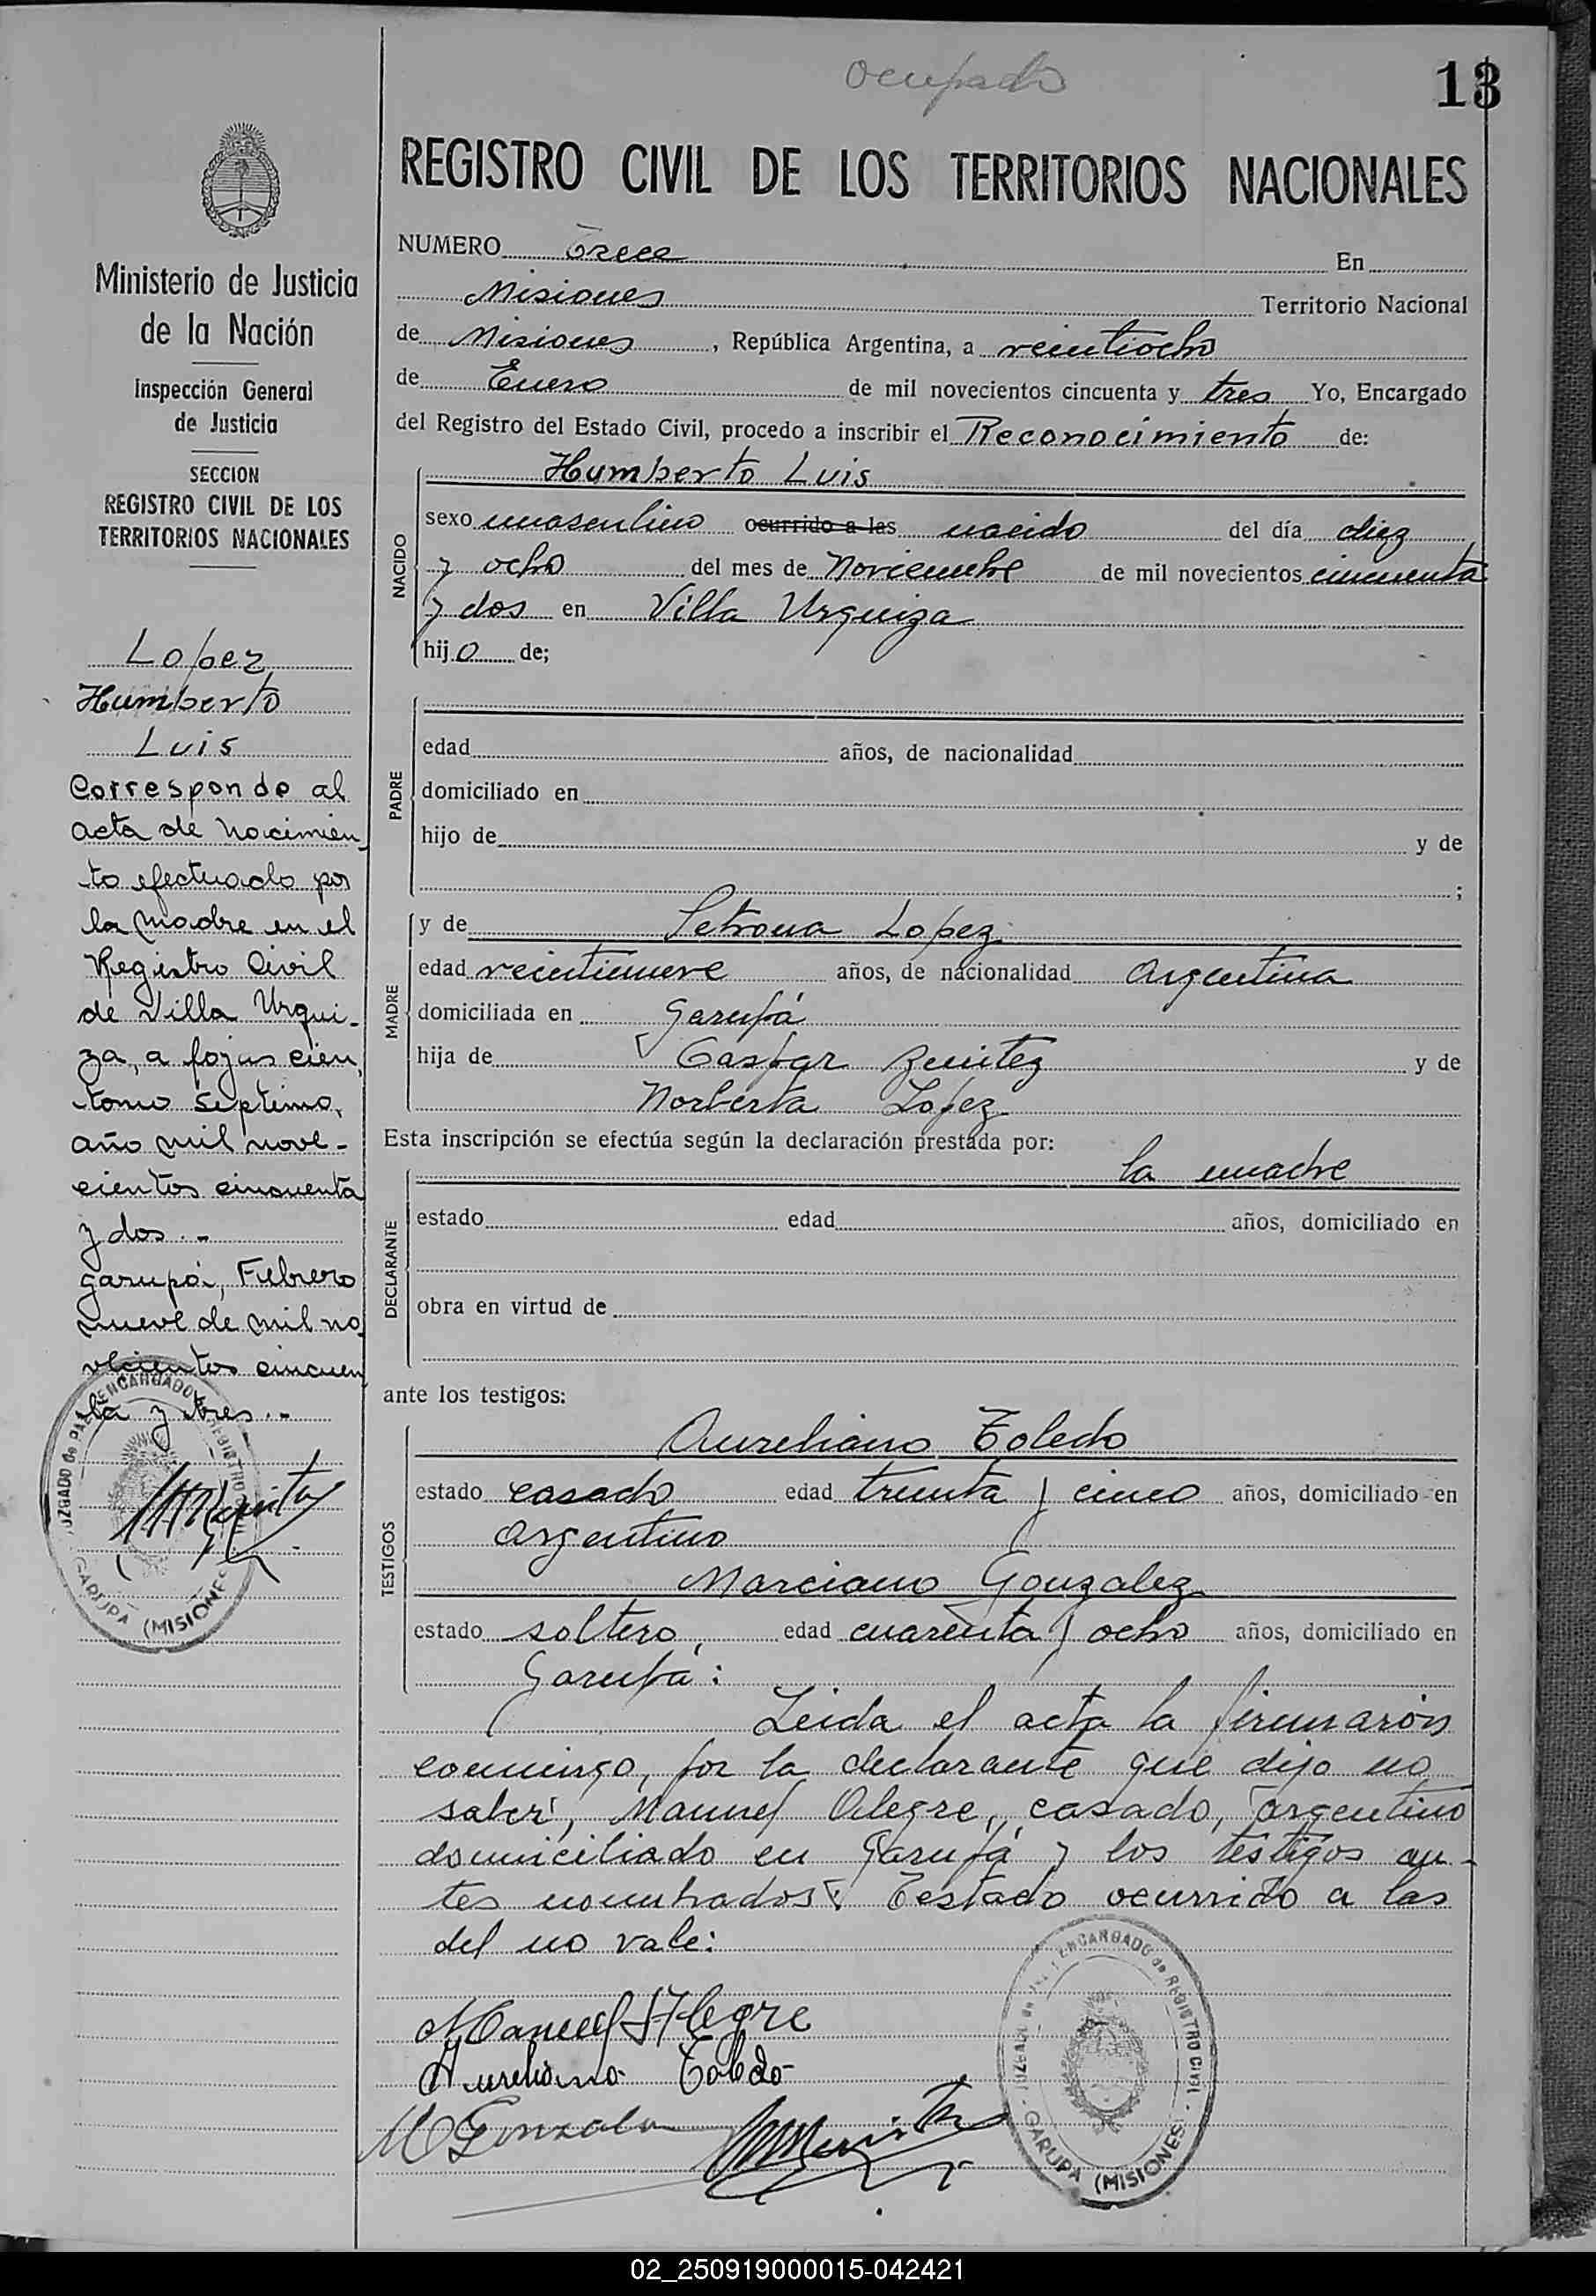 ocupado
13
REGISTRO CIVIL DE LOS TERRITORIOS NACIONALES
Ministerio de Justicia
de la Nación
Inspección General
de Justicia
SECCION
REGISTRO CIVIL DE LOS
TERRITORIOS NACIONALES
Lopez
Humberto
Luis
Corresponde al
acta de nacimien
to efectuado por
la madre en el
Registro Civil
de Villa Urqui-
za, a fojas cien,
tomo septimo,
año mil nove-
cientos cincuenta
y dos.-
garupá, Febrero
nueve de mil no
vecientos cincuen
ta y tres.-
JUZGADO de PAZ ENCARGADO REGISTRO
GARUPA (MISIONES
NUMERO Trece En
Misiones Territorio Nacional
de Misiones, República Argentina, a veintiocho
de Enero de mil novecientos cincuenta y tres Yo, Encargado
del Registro del Estado Civil, procedo a inscribir el Reconocimiento de:
Humberto Luis
NACIDO
sexo masculino ocurrido a las nacido del día diez
y ocho del mes de Noviembre de mil novecientos cincuenta
y dos en Villa Urquiza
hijo de;
PADRE
edad años, de nacionalidad
domiciliado en
hijo de y de
;
MADRE
y de Petrona Lopez
edad veintinueve años, de nacionalidad Argentina
domiciliada en Garupá
hija de Gaspar Benitez y de
Norberta Lopez
Esta inscripción se efectúa según la declaración prestada por:
la madre
DECLARANTE
estado edad años, domiciliado en
obra en virtud de
ante los testigos:
Aureliano Toledo
TESTIGOS
estado casado edad treinta y cinco años, domiciliado en
Argentino
Marciano Gonzalez
estado soltero, edad cuarenta y ocho años, domiciliado en
Garupá:
Leida el acta la firmarón
conmingo, por la declarante que dijo no
saber, Manuel Alegre, casado, argentino
domiciliado en Garupá y los testigos an-
tes nombrados: Testado ocurrido a las
del no vale:
Manuel Alegre
Aureliano Toledo
M Gonzalez
JUZGADO de ENCARGADO de REGISTRO CIVIL
GARUPA (MISIONES)
02_250919000015-042421